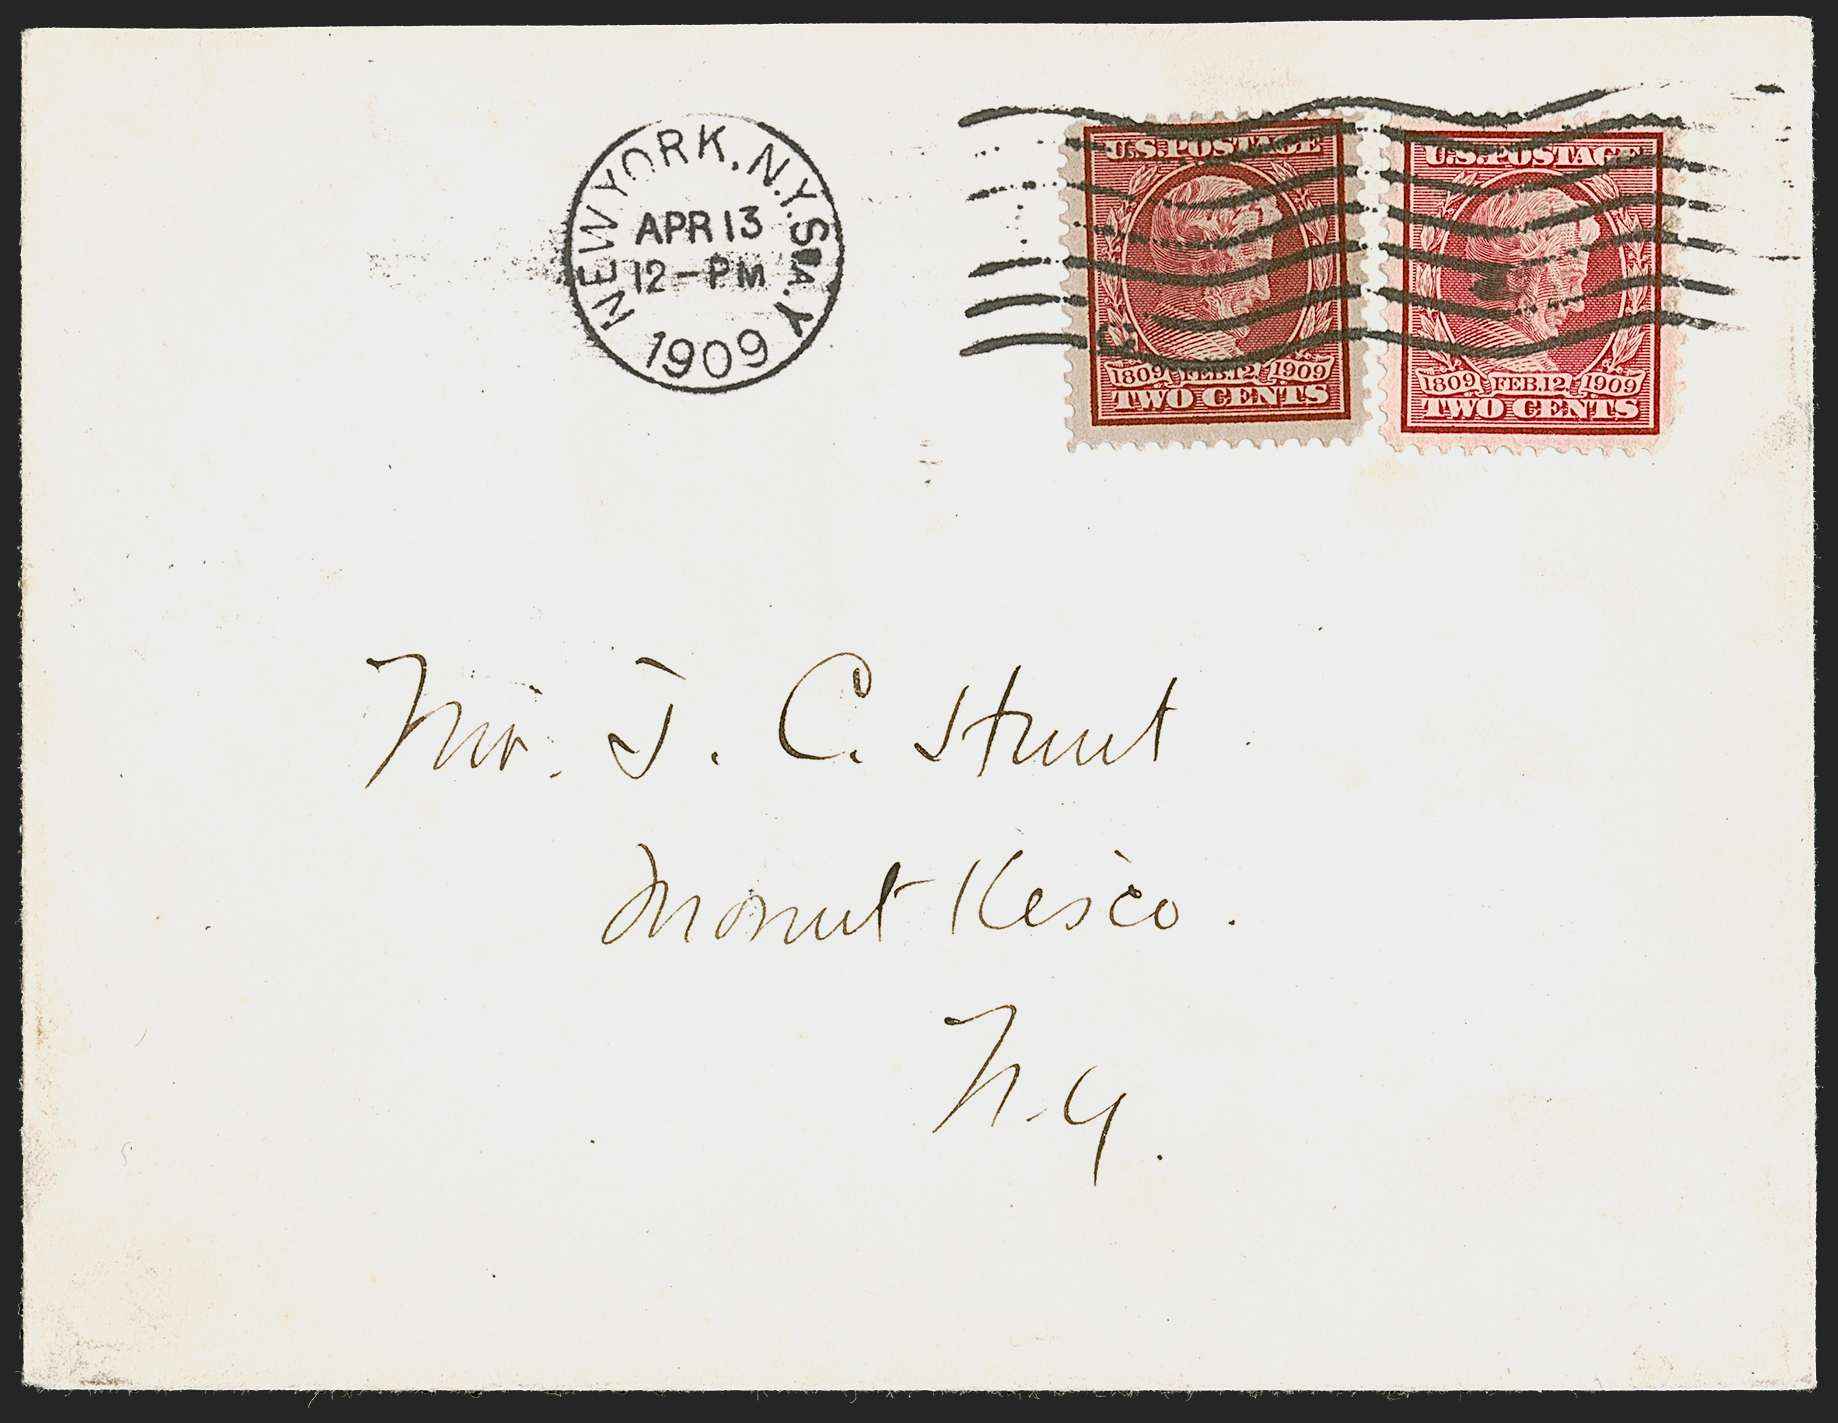 NEW YORK, N.Y. STA. Y
APR 13
12-PM
1909
U.S. POSTAGE
1809 FEB. 12, 1909
TWO CENTS
U.S. POSTAGE
1809 FEB. 12, 1909
TWO CENTS
Mr. J. C. Hunt
Mount Kisco.
N.Y.